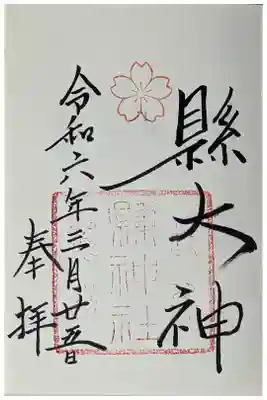 縣大神
令和六年三月廿五日
奉拝